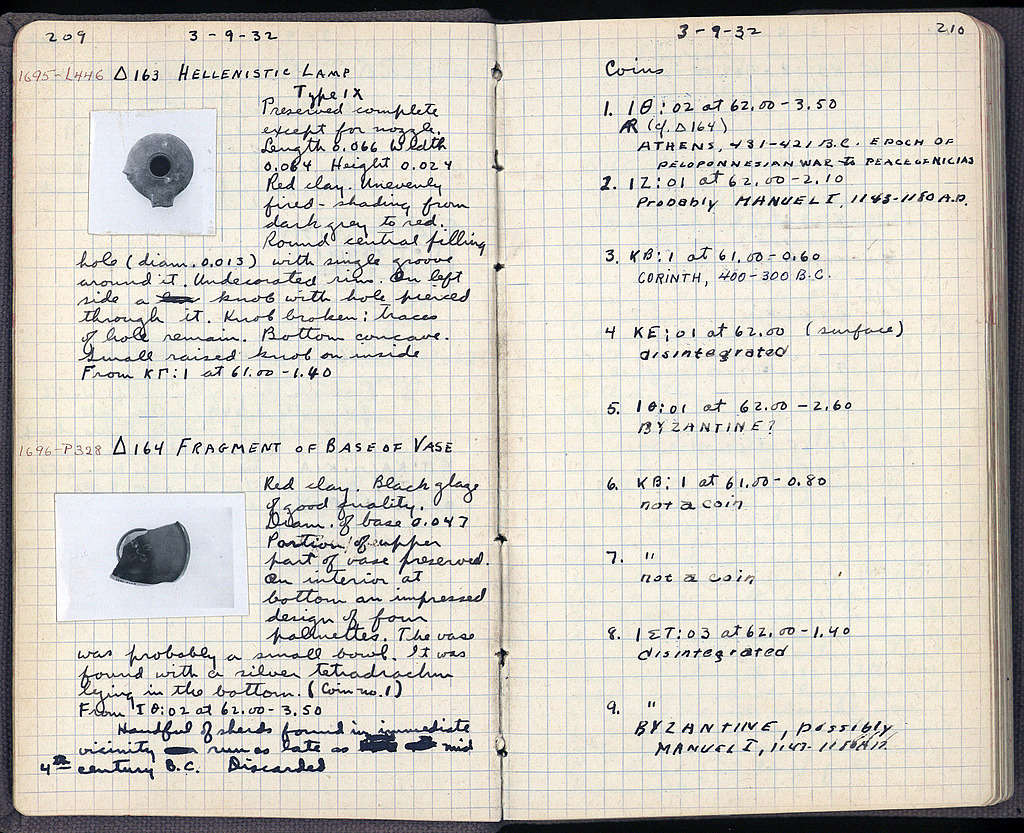 209
3-9-32
1695-L446 Δ163 HELLENISTIC LAMP
Type IX
Preserved complete
except for nozzle.
Length 0.066 Width
0.064 Height 0.024
Red clay. Unevenly
fired - shading from
dark grey to red.
Round central filling
hole (diam. 0.013) with single groove
around it. Undecorated rim. On left
side a knob with hole pierced
through it. Knob broken: traces
of hole remain. Bottom concave.
Small raised knob on inside
From ΚΓ:1 at 61.00-1.40
1696-P328 Δ164 FRAGMENT OF BASE OF VASE
Red clay. Black glaze
of good quality.
Diam. of base 0.047
Portion of upper
part of vase preserved.
On interior at
bottom an impressed
design of four
palmettes. The vase
was probably a small bowl. It was
found with a silver tetradrachm
lying in the bottom. (Coin no. 1)
From ΙΘ:02 at 62.00-3.50
Handful of sherds found in immediate
vicinity run as late as mid
4th century B.C. Discarded
3-9-32
210
Coins
1. ΙΘ:02 at 62.00-3.50
AR (cf. Δ164)
ATHENS, 431-421 B.C. EPOCH OF
PELOPONNESIAN WAR to PEACE OF NICIAS
2. ΙΖ:01 at 62.00-2.10
Probably MANUEL I, 1143-1180 A.D.
3. ΚΒ:1 at 61.00-0.60
CORINTH, 400-300 B.C.
4 ΚΕ:01 at 62.00 (surface)
disintegrated
5. ΙΘ:01 at 62.00-2.60
BYZANTINE?
6. ΚΒ:1 at 61.00-0.80
not a coin
7. "
not a coin
8. ΙΣΤ:03 at 62.00-1.40
disintegrated
9. "
BYZANTINE, possibly
MANUEL I,